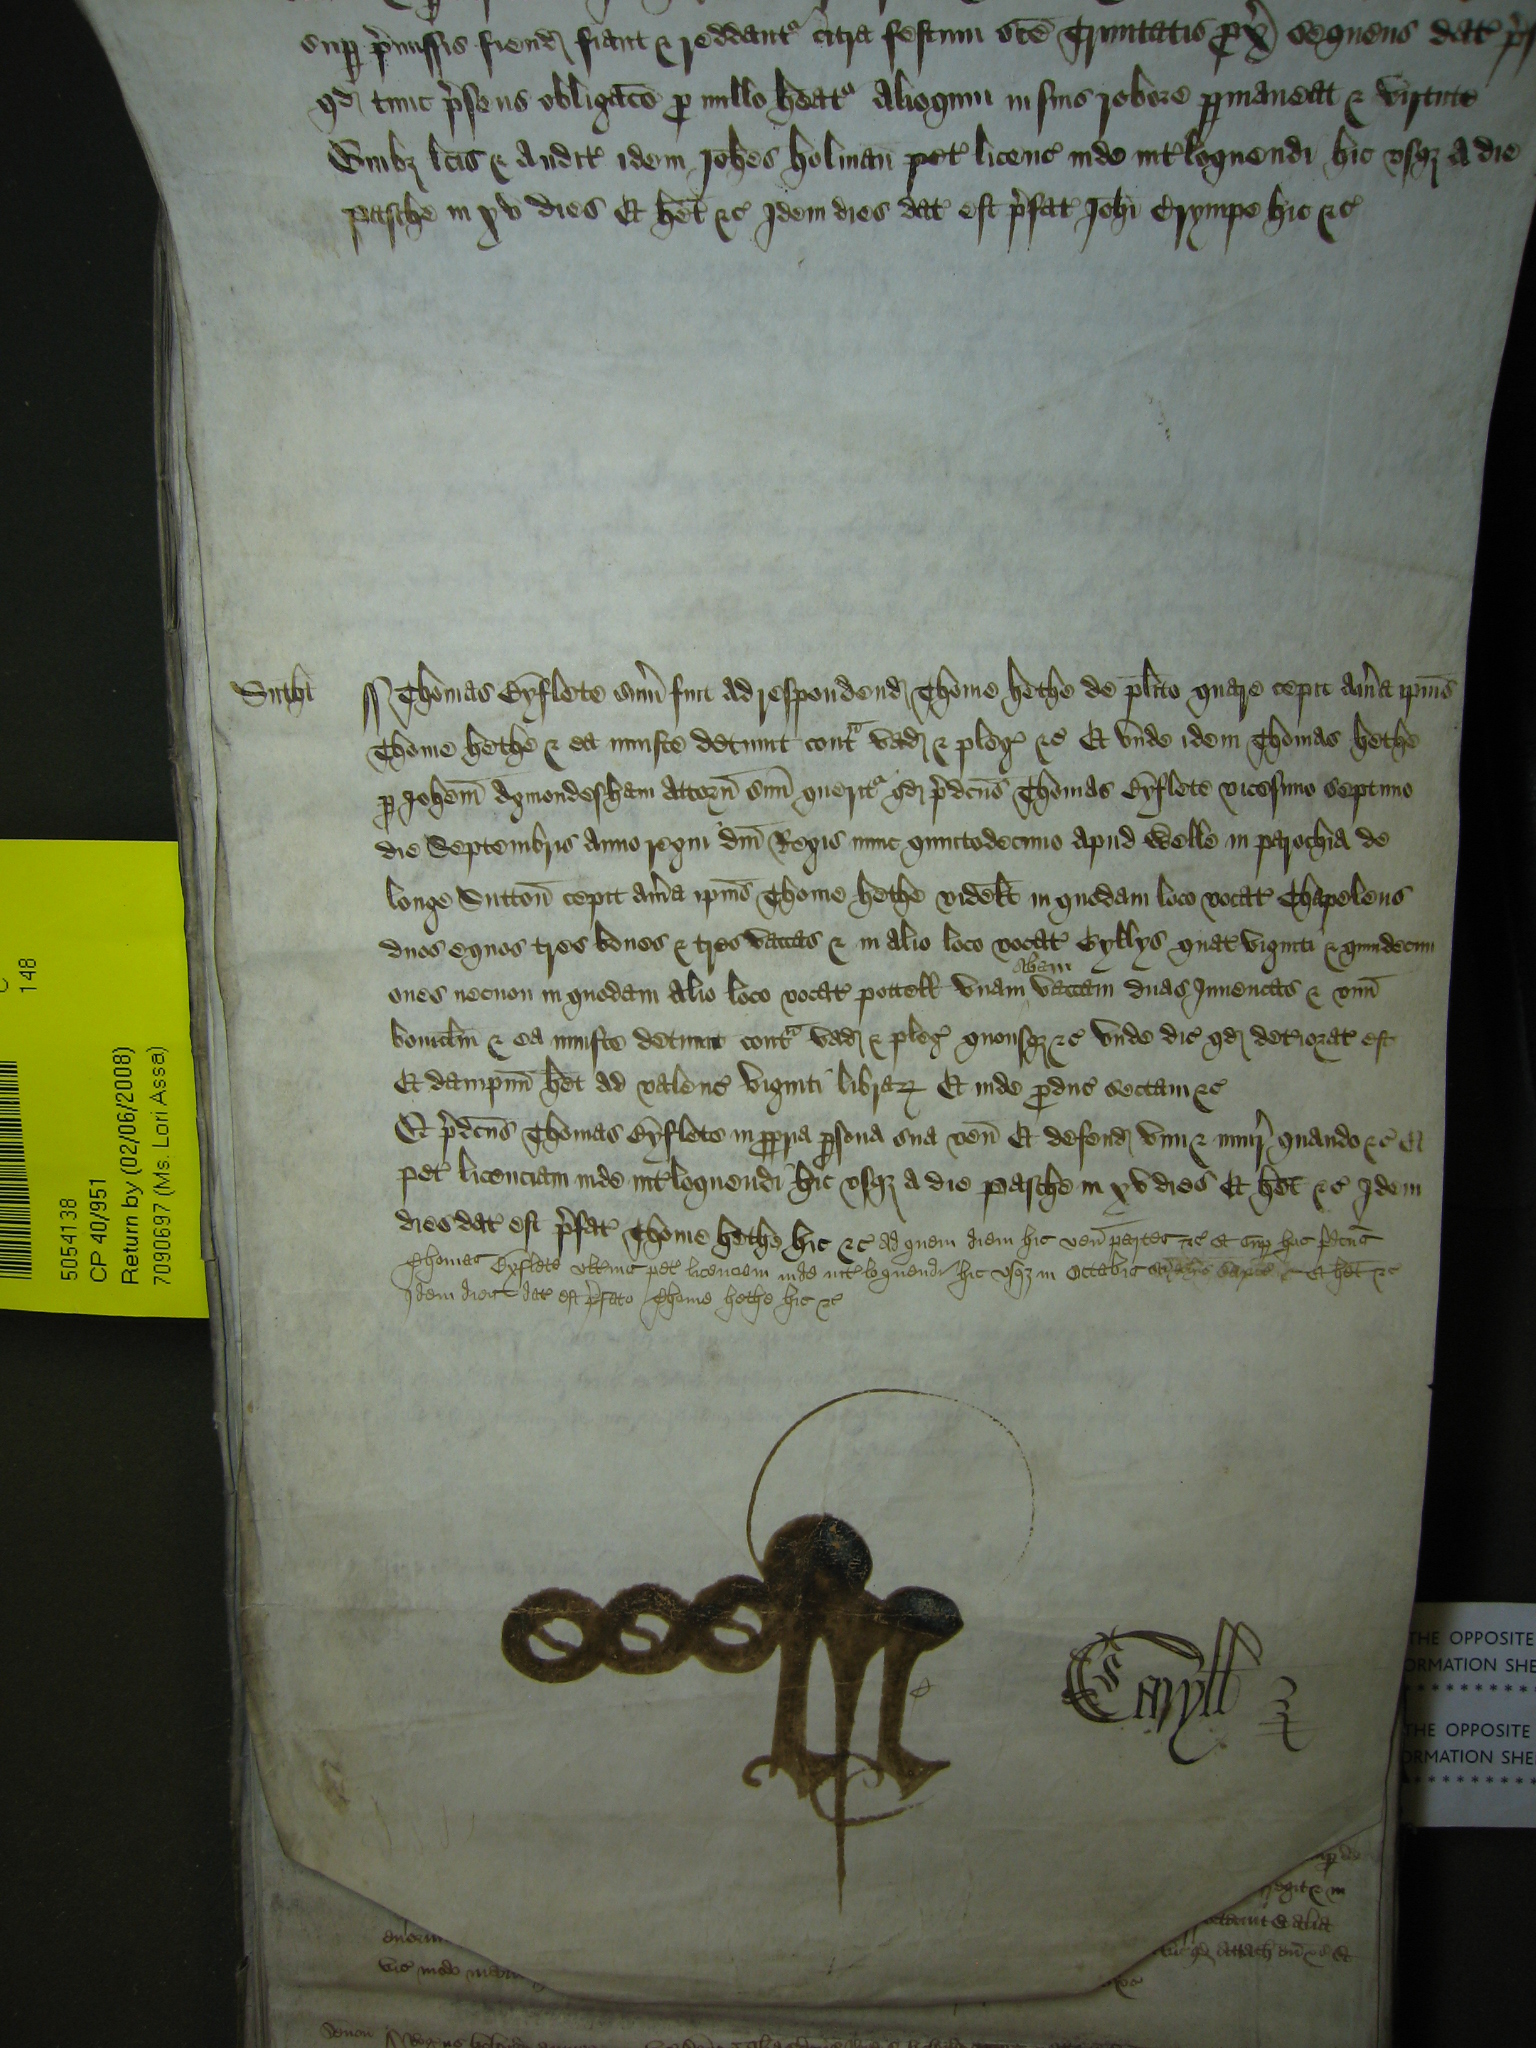 supp p'missis fiend fiant & reddant citra festum sce Trinitatis px sequens dat
qd tunc p'sens obligaco p nullo heat Alioquin in suis robore pmaneat & virtute
Quibz lcis & audit idem Johes holman pet licenc inde int'loquendi hic usqz a die
pasche in xv dies Et het &c Idem dies dat est p'fat Johi Crympe hic &c
Sutht
Thomas Eyflete sum fuit ad respondend Thome hethe de plito quare cepit aueria ipius
Thome hethe & ea iniuste detinuit cont vad & pleg &c Et unde idem Thomas hethe
p Johem Agmondesham attorn suu querit qd p'dcus Thomas Eyflete vicesimo septimo
die Septembris anno regni dni Regis nunc quintodecimo apud Welle in parochia de
longe Sutton cepit aueria ipius Thome hethe videlt in quodam loco vocat Chapelens
duos equos tres boues & tres vaccas & in alio loco vocat Gyllys quat viginti & quindecim
oues necnon in quodam alio loco vocat pottell unam vaccam duas Juuencas & unu
boviclm & ea iniuste detinuit cont vad & pleg quousqz &c unde dic qd deteriorat est
Et dampnu het ad valenc viginti librar Et inde pduc sectam &c
Et p'dcus Thomas Eyflete in ppria psona sua ven Et defend vim & iniur quando &c Et
pet licenciam inde int'loquendi hic usqz a die pasche in xv dies Et het &c Idem
dies dat est p'fat Thome hethe hic &c ad quem diem hic ven partes &c Et sup hoc p'dcus
Thomas Eyflete ulterius pet licenciam inde int'loquendi hic usqz in Octabis Et het &c
Idem dies dat est p'fato Thome hethe hic &c
Caryll
5054138
CP 40/951
Return by (02/06/2008)
7090697 (Ms. Lori Assa)
148
THE OPPOSITE
ORMATION SHE
**********
THE OPPOSITE
ORMATION SHE
**********